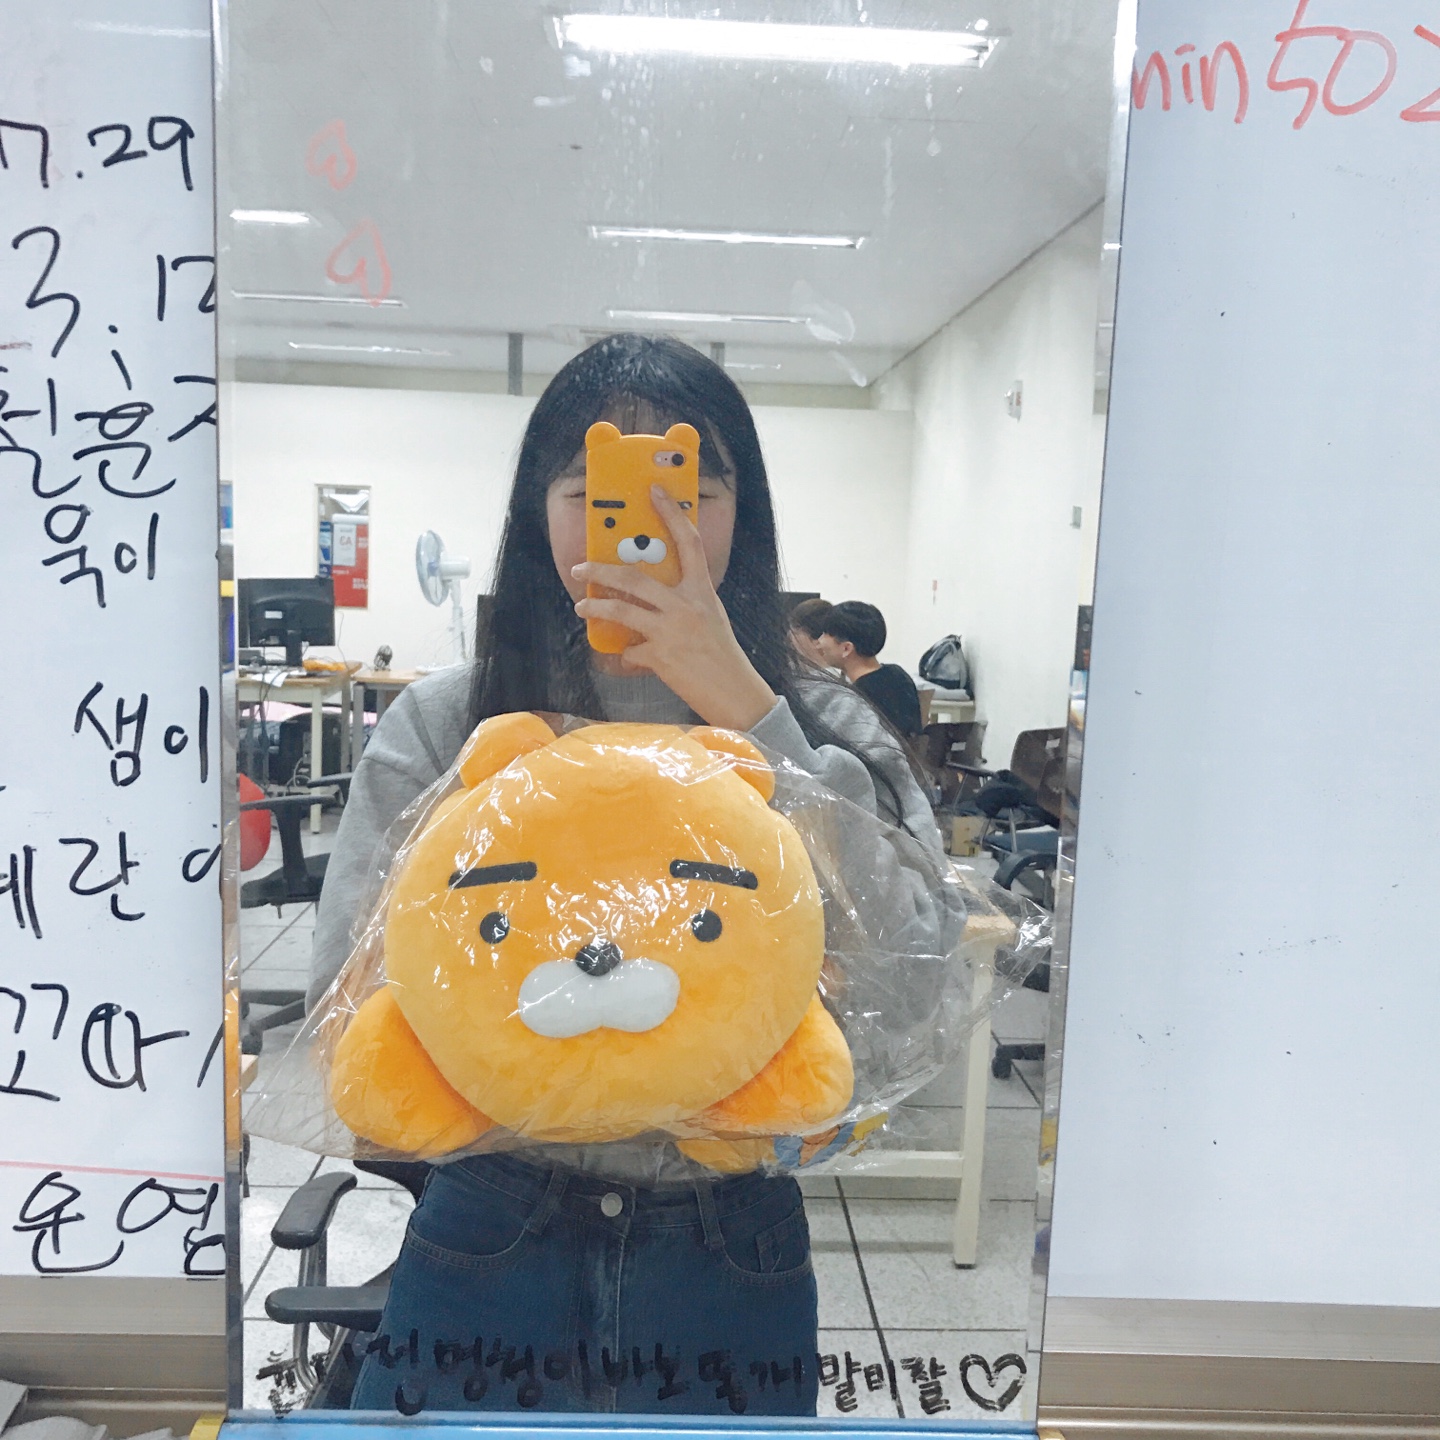 7.29
3.12
욱이
샘이
예란
꼬따
윤영
min502
멍청이 바보 똥개 말미잘♡